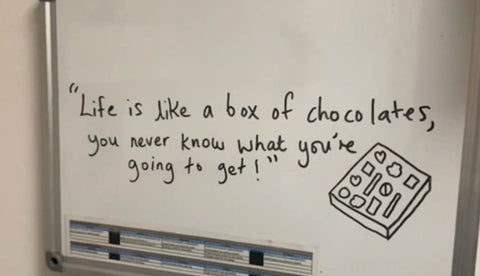 "Life is like a box of chocolates,
you never know what you're
going to get!"